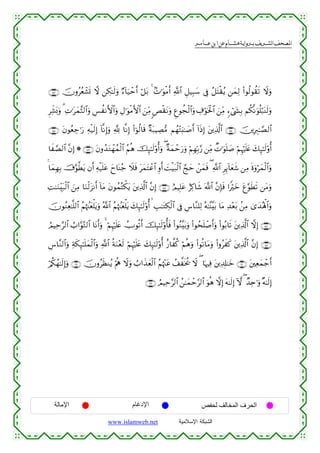 المصحف الشريف برواية هشام عن ابن عامر
وَلَا تَقُولُوا۟ لِمَن يُقْتَلُ فِى سَبِيلِ ٱللَّهِ أَمْوَٰتٌۢ ۚ بَلْ أَحْيَآءٌ وَلَٰكِن لَّا تَشْعُرُونَ
وَلَنَبْلُوَنَّكُم بِشَىْءٍ مِّنَ ٱلْخَوْفِ وَٱلْجُوعِ وَنَقْصٍ مِّنَ ٱلْأَمْوَٰلِ وَٱلْأَنفُسِ وَٱلثَّمَرَٰتِ ۗ وَبَشِّرِ
ٱلصَّٰبِرِينَ ٱلَّذِينَ إِذَآ أَصَٰبَتْهُم مُّصِيبَةٌ قَالُوٓا۟ إِنَّا لِلَّهِ وَإِنَّآ إِلَيْهِ رَٰجِعُونَ
أُو۟لَٰٓئِكَ عَلَيْهِمْ صَلَوَٰتٌ مِّن رَّبِّهِمْ وَرَحْمَةٌ ۖ وَأُو۟لَٰٓئِكَ هُمُ ٱلْمُهْتَدُونَ ۞ إِنَّ ٱلصَّفَا
وَٱلْمَرْوَةَ مِن شَعَآئِرِ ٱللَّهِ ۖ فَمَنْ حَجَّ ٱلْبَيْتَ أَوِ ٱعْتَمَرَ فَلَا جُنَاحَ عَلَيْهِ أَن يَطَّوَّفَ بِهِمَا ۚ
وَمَن تَطَوَّعَ خَيْرًا فَإِنَّ ٱللَّهَ شَاكِرٌ عَلِيمٌ إِنَّ ٱلَّذِينَ يَكْتُمُونَ مَآ أَنزَلْنَا مِنَ ٱلْبَيِّنَٰتِ
وَٱلْهُدَىٰ مِنۢ بَعْدِ مَا بَيَّنَّٰهُ لِلنَّاسِ فِى ٱلْكِتَٰبِ ۙ أُو۟لَٰٓئِكَ يَلْعَنُهُمُ ٱللَّهُ وَيَلْعَنُهُمُ ٱللَّٰعِنُونَ
إِلَّا ٱلَّذِينَ تَابُوا۟ وَأَصْلَحُوا۟ وَبَيَّنُوا۟ فَأُو۟لَٰٓئِكَ أَتُوبُ عَلَيْهِمْ ۚ وَأَنَا ٱلتَّوَّابُ ٱلرَّحِيمُ
إِنَّ ٱلَّذِينَ كَفَرُوا۟ وَمَاتُوا۟ وَهُمْ كُفَّارٌ أُو۟لَٰٓئِكَ عَلَيْهِمْ لَعْنَةُ ٱللَّهِ وَٱلْمَلَٰٓئِكَةِ وَٱلنَّاسِ
أَجْمَعِينَ خَٰلِدِينَ فِيهَا ۖ لَا يُخَفَّفُ عَنْهُمُ ٱلْعَذَابُ وَلَا هُمْ يُنظَرُونَ وَإِلَٰهُكُمْ
إِلَٰهٌ وَٰحِدٌ ۖ لَّآ إِلَٰهَ إِلَّا هُوَ ٱلرَّحْمَٰنُ ٱلرَّحِيمُ
الحرف المخالف لحفص الإدغام الإمالة
www.islamweb.net الشبكة الإسلامية